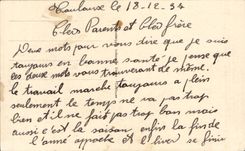 Toulouse le 18-12-34
Chers Parents et Cher frère
Deux mots pour vous dire que je suis
toujours en bonne santé je pense que
ces deux mots vous trouveront de même.
le travail marche toujours a plein
seulement le temps ne va pas trop
bien et il ne fait pas trop bon mais
aussi c'est la saison. enfin la fin de
l'anné approche et l'hiver se finir